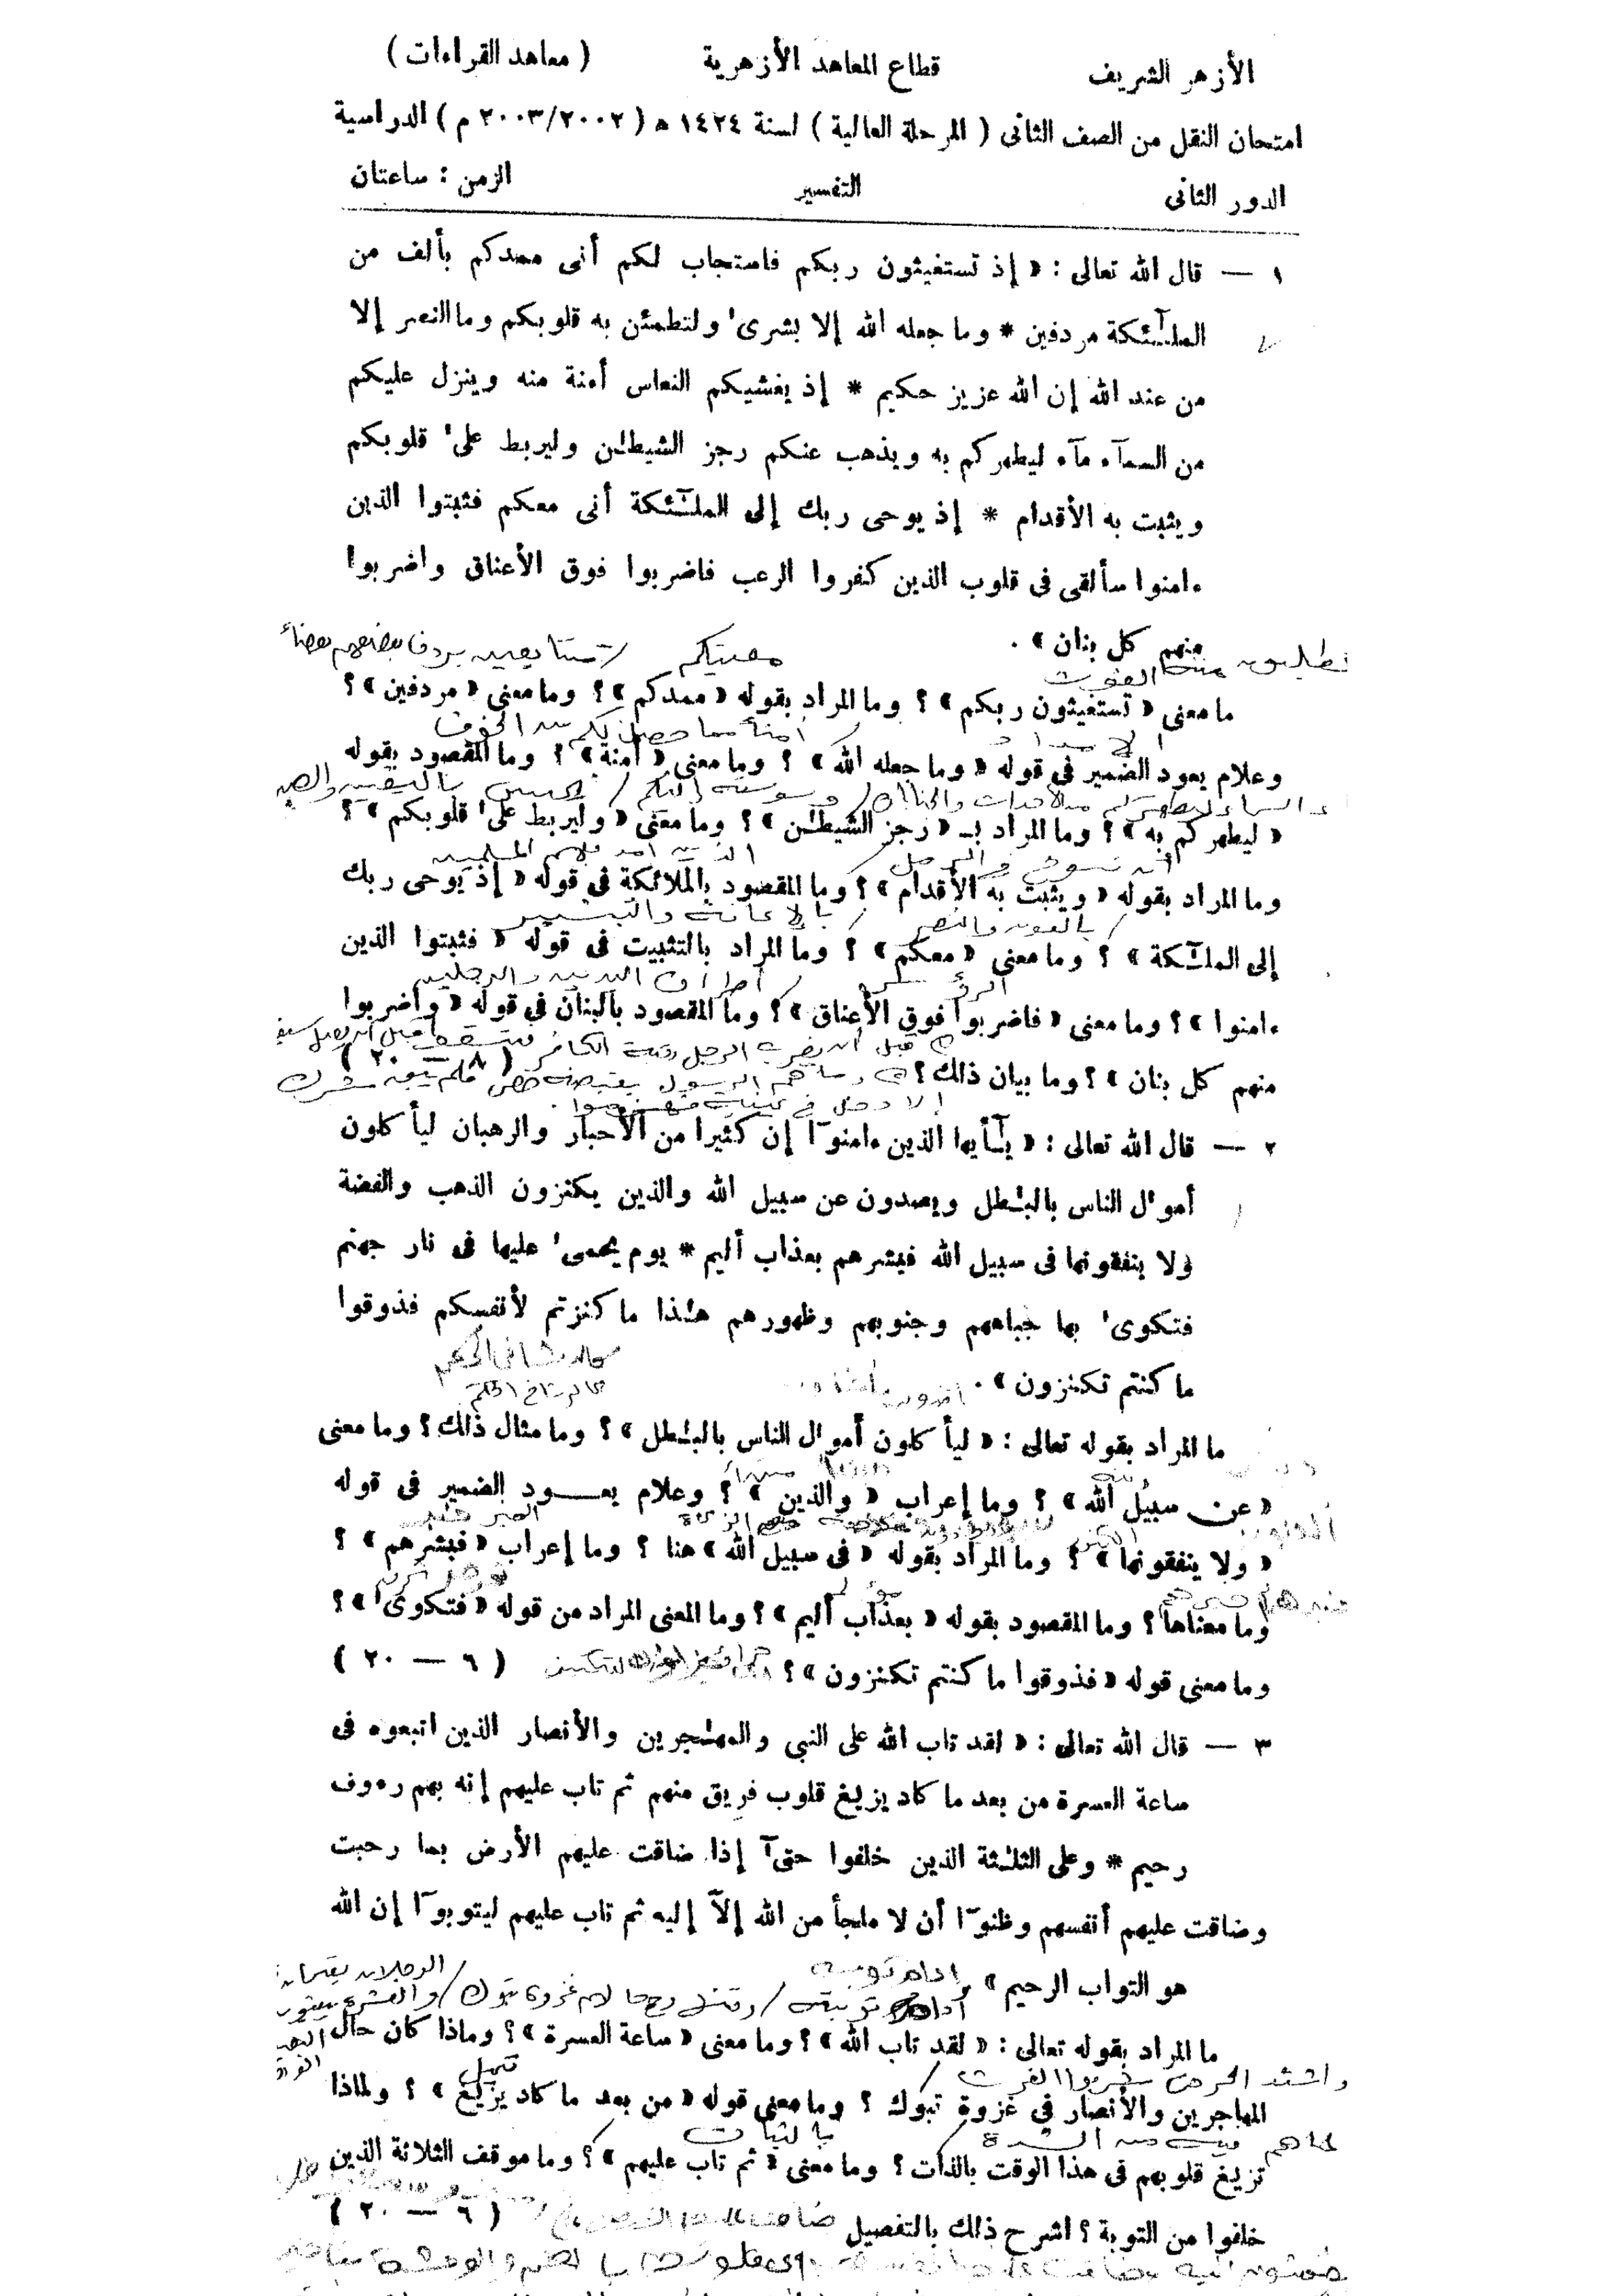 الأزهر الشريف قطاع المعاهد الأزهرية ( معاهد القراءات )
امتحان النقل من الصف الثانى ( المرحلة العالية ) لسنة ١٤٢٤ ه ( ٢٠٠٣/٢٠٠٢ م ) الدراسية
الدور الثانى التفسير الزمن : ساعتان
١ — قال الله تعالى : « إذ تستغيثون ربكم فاستجاب لكم أنى ممدكم بألف من
الملـٰۤئكة مردفين * وما جعله الله إلا بشرىٰ ولتطمئن به قلوبكم وما النصر إلا
من عند الله إن الله عزيز حكيم * إذ يغشيكم النعاس أمنة منه وينزل عليكم
من السمآء مآء ليطهركم به ويذهب عنكم رجز الشيطـٰن وليربط علىٰ قلوبكم
ويثبت به الأقدام * إذ يوحى ربك إلى الملـٰۤئكة أنى معكم فثبتوا الذين
ءامنوا سألقى فى قلوب الذين كفروا الرعب فاضربوا فوق الأعناق واضربوا
منهم كل بنان » .
تطلبون منه الغوث معينكم / متتابعين يردف بعضهم بعضاً
ما معنى « تستغيثون ربكم » ؟ وما المراد بقوله « ممدكم » ؟ وما معنى « مردفين » ؟
الإمداد أمناً مما حصل لكم من الخوف
وعلام يعود الضمير فى قوله « وما جعله الله » ؟ وما معنى « أمنة » ؟ وما المقصود بقوله
ليطهركم من الأحداث والجنابات / وسوسته إليكم / يحبس باليقين والصبر
« ليطهركم به » ؟ وما المراد بـ « رجز الشيطـٰن » ؟ وما معنى « وليربط علىٰ قلوبكم » ؟
أن تسوخ فى الرمل الذين أمد بهم المسلمين
وما المراد بقوله « ويثبت به الأقدام » ؟ وما المقصود بالملائكة فى قوله « إذ يوحى ربك
بالعون والنصر / بالإعانة والتبشير
إلى الملـٰۤئكة » ؟ وما معنى « معكم » ؟ وما المراد بالتثبيت فى قوله « فثبتوا الذين
الرؤوس أطراف اليدين والرجلين
ءامنوا » ؟ وما معنى « فاضربوا فوق الأعناق » ؟ وما المقصود بالبنان فى قوله « واضربوا
قبل أن يضرب الرجل رقبة الكافر فتسقط قبل أن يصل سيفه
منهم كل بنان » ؟ وما بيان ذلك ؟ ( ٨ — ٢٠ )
ورماهم الرسول بقبضة حصى فلم يبق مشرك
إلا دخل فى عينيه فهزموا
٢ — قال الله تعالى : « يـٰۤأيها الذين ءامنوۤا إن كثيرا من الأحبار والرهبان ليأكلون
أموٰل الناس بالبـٰطل ويصدون عن سبيل الله والذين يكنزون الذهب والفضة
ولا ينفقونها فى سبيل الله فبشرهم بعذاب أليم * يوم يحمىٰ عليها فى نار جهنم
فتكوىٰ بها جباههم وجنوبهم وظهورهم هـٰذا ما كنزتم لأنفسكم فذوقوا
ما كنتم تكنزون » .
ما المراد بقوله تعالى : « ليأكلون أموٰل الناس بالبـٰطل » ؟ وما مثال ذلك ؟ وما معنى
« عن سبيل الله » ؟ وما إعراب « والذين » ؟ وعلام يعــود الضمير فى قوله
« ولا ينفقونها » ؟ وما المراد بقوله « فى سبيل الله » هنا ؟ وما إعراب « فبشرهم » ؟
مؤلم
وما معناها ؟ وما المقصود بقوله « بعذاب أليم » ؟ وما المعنى المراد من قوله « فتكوىٰ » ؟
وما معنى قوله « فذوقوا ما كنتم تكنزون » ؟ ( ٦ — ٢٠ )
٣ — قال الله تعالى : « لقد تاب الله على النبي والمهـٰجرين والأنصار الذين اتبعوه فى
ساعة العسرة من بعد ما كاد يزيغ قلوب فريق منهم ثم تاب عليهم إنه بهم رءوف
رحيم * وعلى الثلـٰثة الذين خلفوا حتىۤ إذا ضاقت عليهم الأرض بما رحبت
وضاقت عليهم أنفسهم وظنوۤا أن لا ملجأ من الله إلآ إليه ثم تاب عليهم ليتوبوۤا إن الله
هو التواب الرحيم » .
أدام توبته / وقت حالهم غزوة تبوك / الرجلان يقتسمان
ما المراد بقوله تعالى : « لقد تاب الله » ؟ وما معنى « ساعة العسرة » ؟ وماذا كان حال
واشتد الحر حتى شربوا الفرث / تميل
المهاجرين والأنصار فى غزوة تبوك ؟ وما معنى قوله « من بعد ما كاد يزيغ » ؟ ولماذا
لما هم فيه من الشدة بالثبات
تزيغ قلوبهم فى هذا الوقت بالذات ؟ وما معنى « ثم تاب عليهم » ؟ وما موقف الثلاثة الذين
خلفوا من التوبة ؟ اشرح ذلك بالتفصيل ( ٦ — ٢٠ )